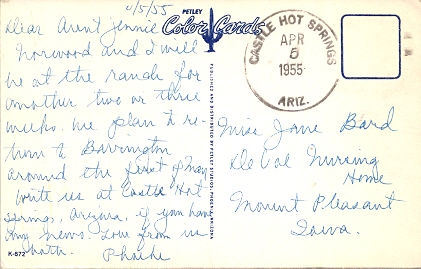 4/5/55
Dear Aunt Jennie
Norwood and I will
be at the ranch for
another two or three
weeks. We plan to re-
turn to Barrington
around the first of May
Write us at Castle Hot
Springs, Arizona, if you have
any news. Love from us
both. Phoebe
K-672
PETLEY
Color Cards
CASTLE HOT SPRINGS
APR
5
1955
ARIZ.
Miss Jane Bard
De Val Nursing
Home
Mount Pleasant
Iowa.